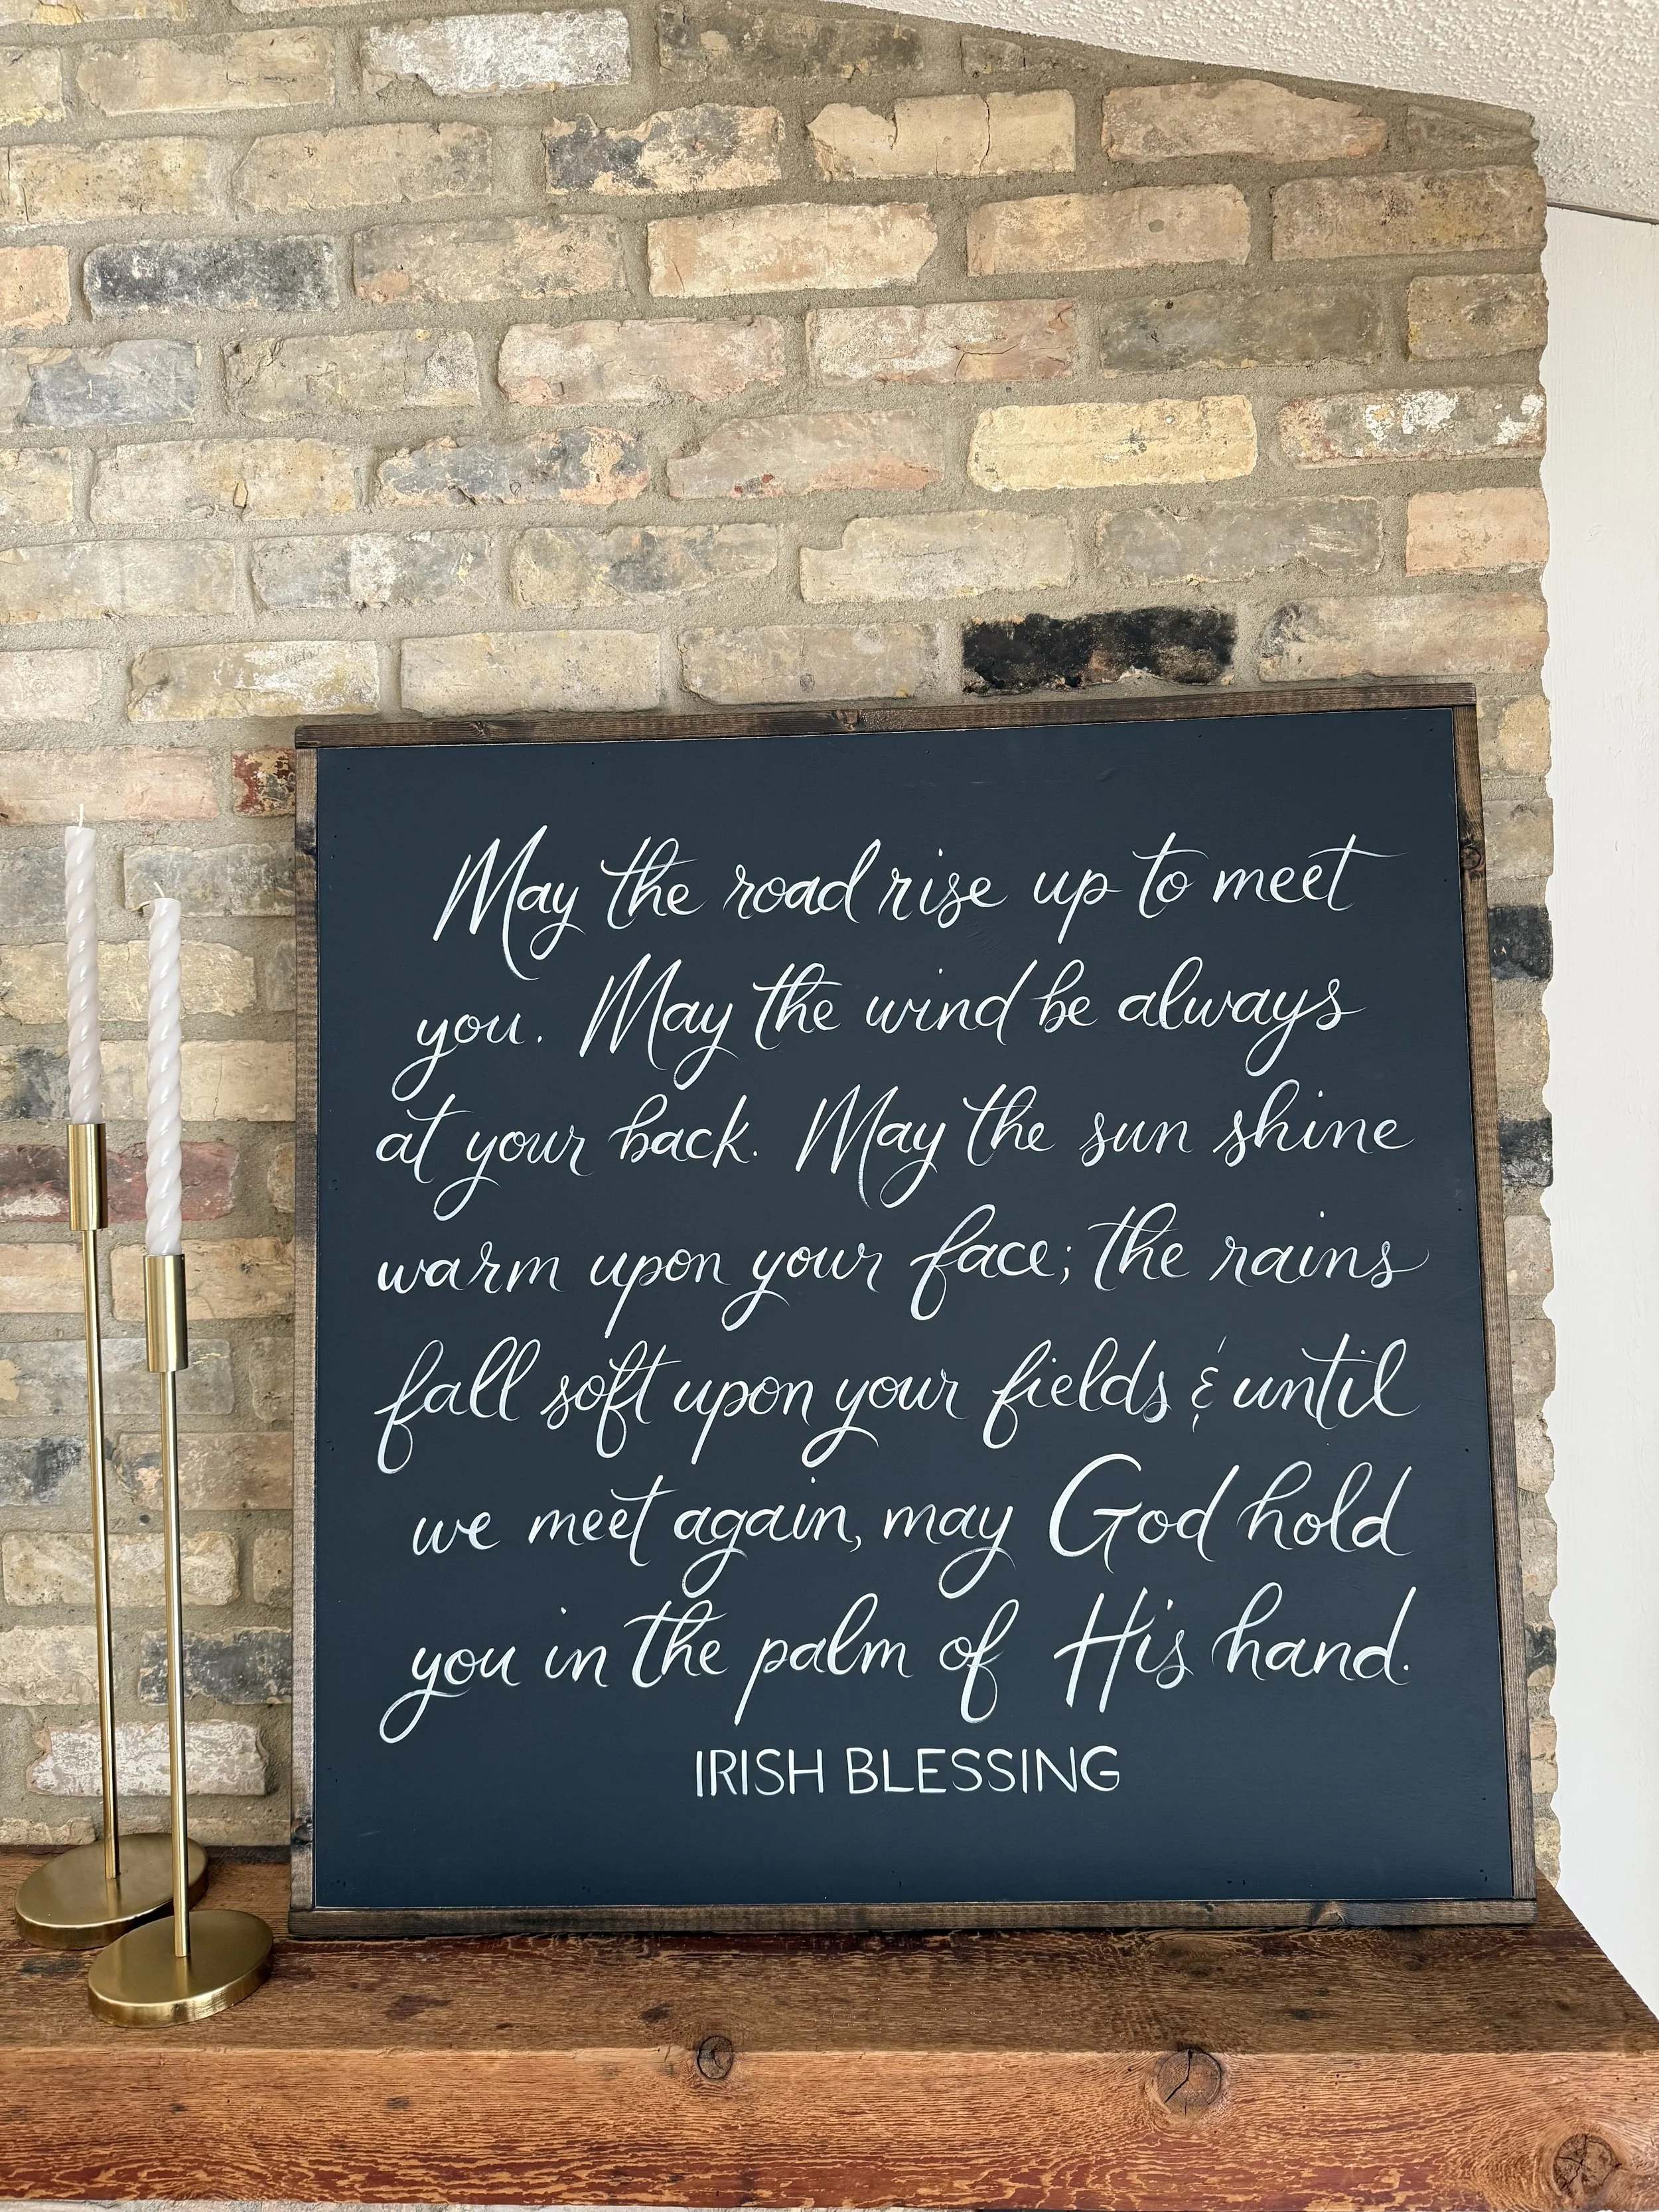 May the road rise up to meet
you. May the wind be always
at your back. May the sun shine
warm upon your face; the rains
fall soft upon your fields & until
we meet again, may God hold
you in the palm of His hand.
IRISH BLESSING